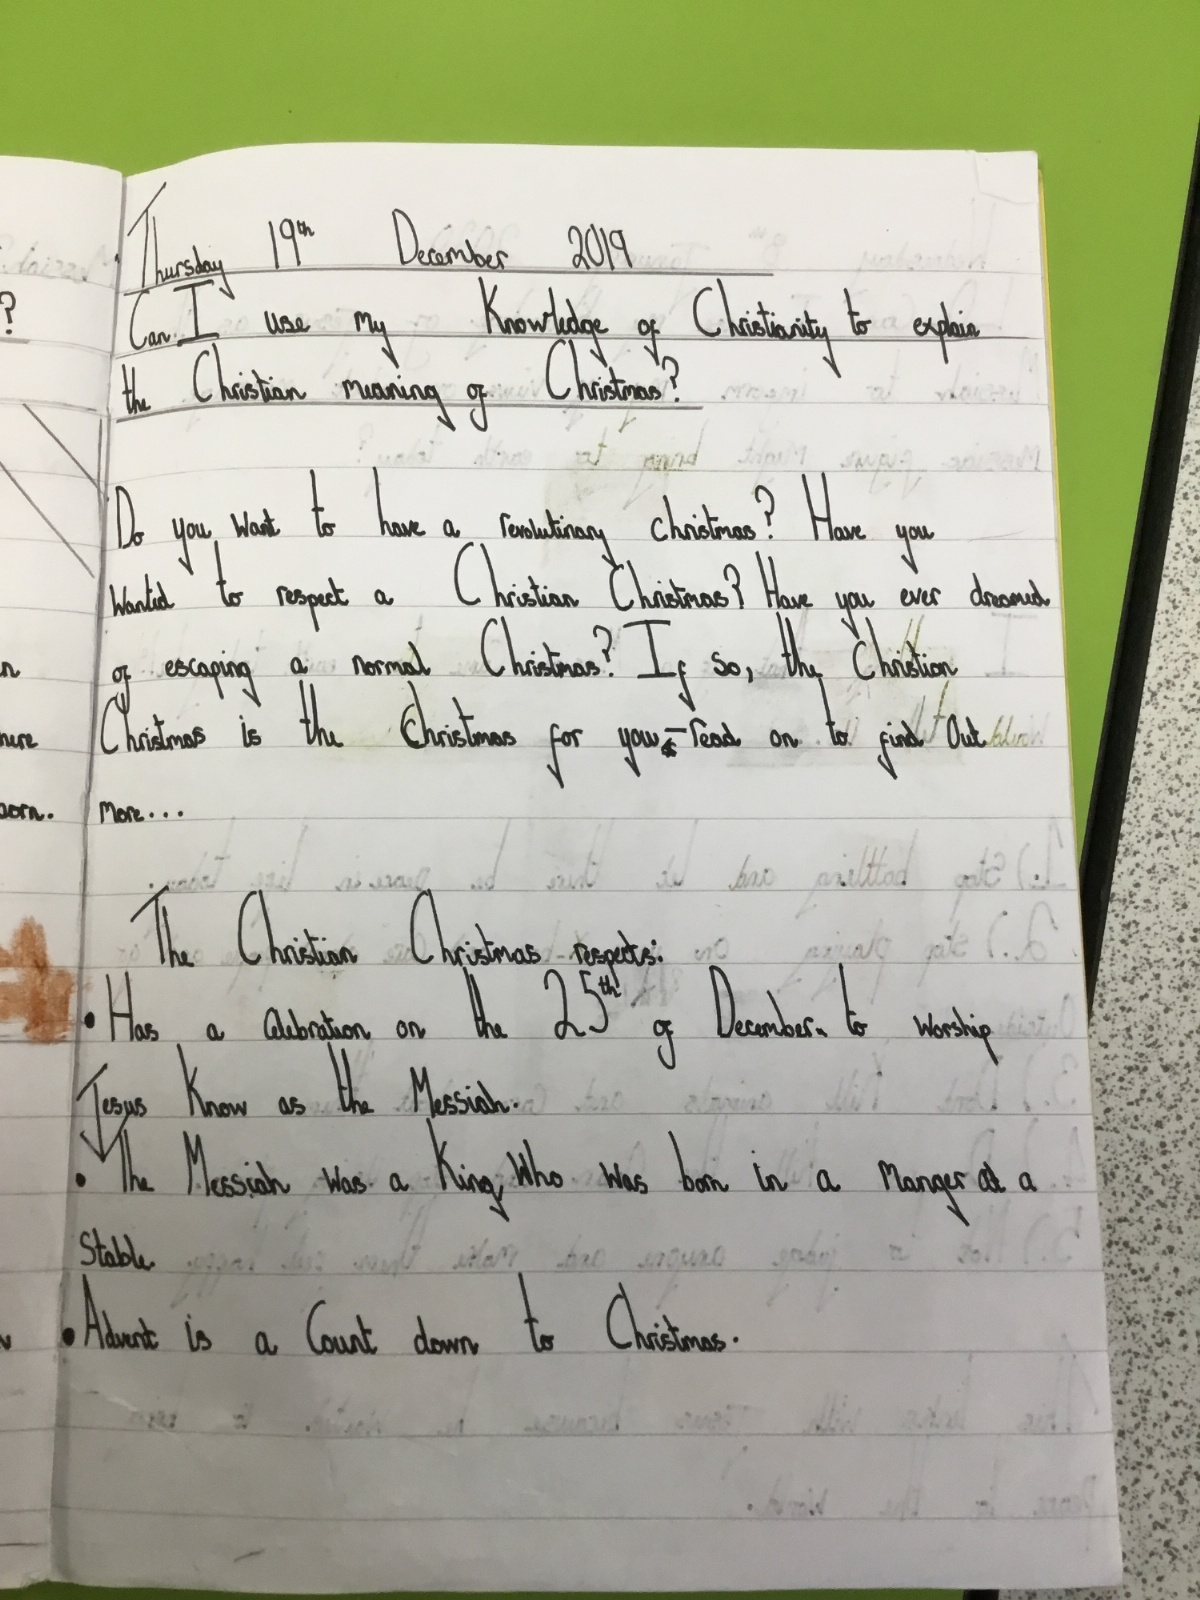 Thursday 19th December 2019
Can I use my Knowledge of Christianity to explain
the Christian meaning of Christmas?
Do you want to have a revolutinary christmas? Have you
wanted to respect a Christian Christmas? Have you ever dreamed
of escaping a normal Christmas? If so, the Christian
Christmas is the Christmas for you - read on to find out
more...
The Christian Christmas respects:
• Has a celebration on the 25th of December to worship
Jesus Know as the Messiah.
• The Messiah was a King, Who was born in a manger at a
Stable
• Advent is a Count down to Christmas.
?
n
here
born.